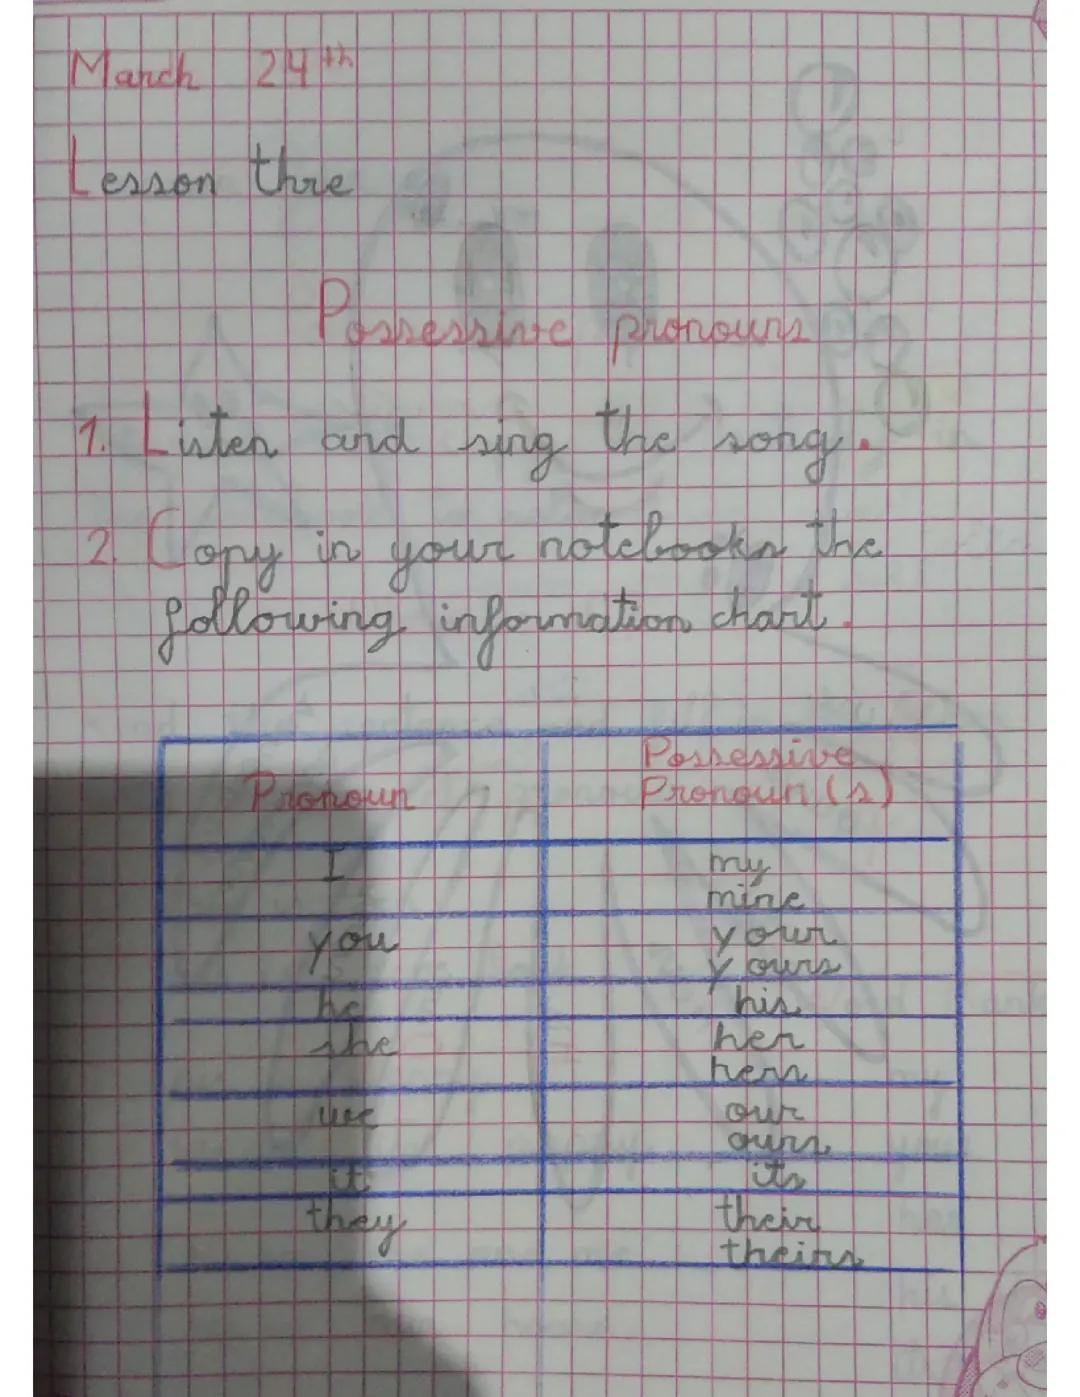 March 24th
Lesson thre
Possessive pronouns
1. Listen and sing the song.
2. Copy in your notebooks the
following information chart.
Pronoun
Possessive
Pronoun(s)
I
my
mine
you
your
yours
he
his
she
her
hers
we
our
ours
it
its
they
their
theirs